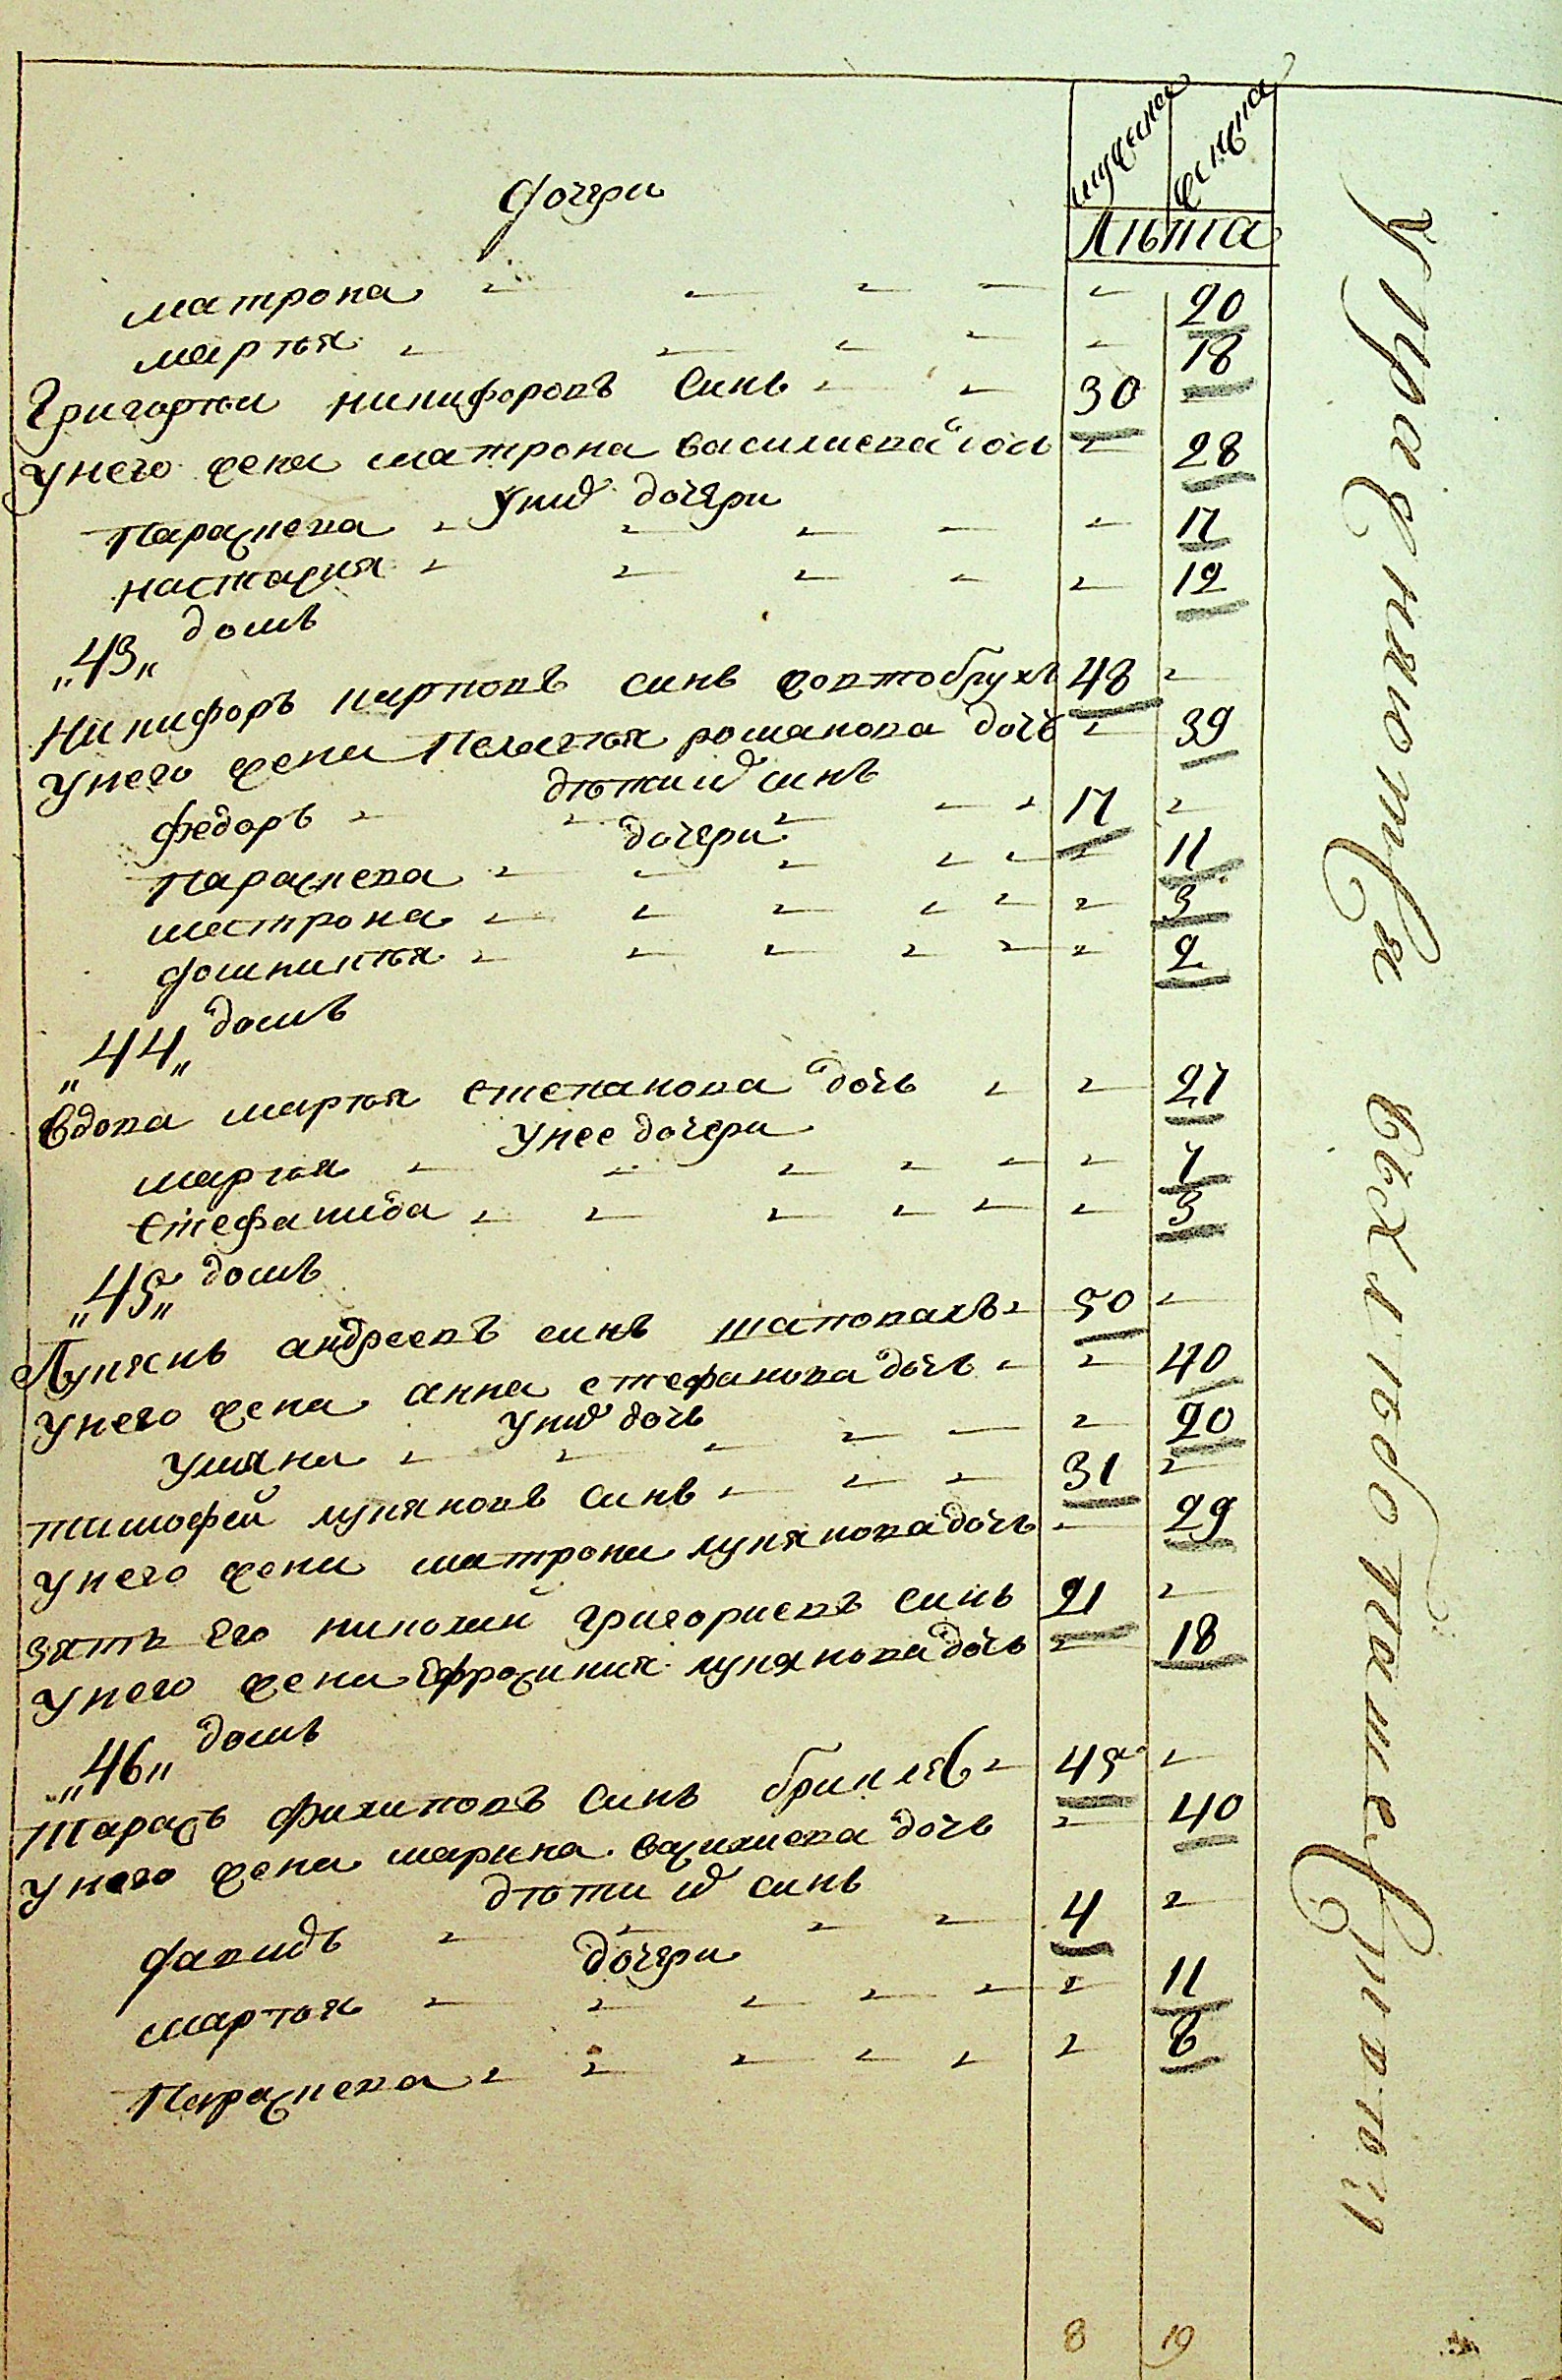 мужеска женска
Лѣта
дочери
матрона 20
марѳя 18
Григорѣи никифоровъ синъ 30
унего жена матрона василиева дочь 28
униⷯ дочери
Параскева 17
настасия 12
„43„ домъ
Никифоръ карповъ синъ жовтобрухъ 48
унего жена Пелагѣя романова дочь 39
дѣти иⷯ синъ
федоръ 17
дочери
Параскева 11
матрона 3
домникѣя 2
„44„ домъ
Вдова марѳя степанова дочь 27
унее дочери
марѳя 7
стефанида 3
„45„ домъ
Лукянъ андреевъ синъ шаповалъ 50
унего жена анна стефанова дочь 40
униⷯ дочь
уляна 20
тимофей лукяновъ синъ 31
унего жена матрона лукянова дочь 29
зять его николай григориевъ синъ 21
унего жена Ефросиния лукянова дочь 18
„46„ домъ
Тарасъ филиповъ синъ 45
унего жена марина василиева дочь 40
дѣти иⷯ синъ
давидъ 4
дочери
марѳя 11
Параскева 6
8 19